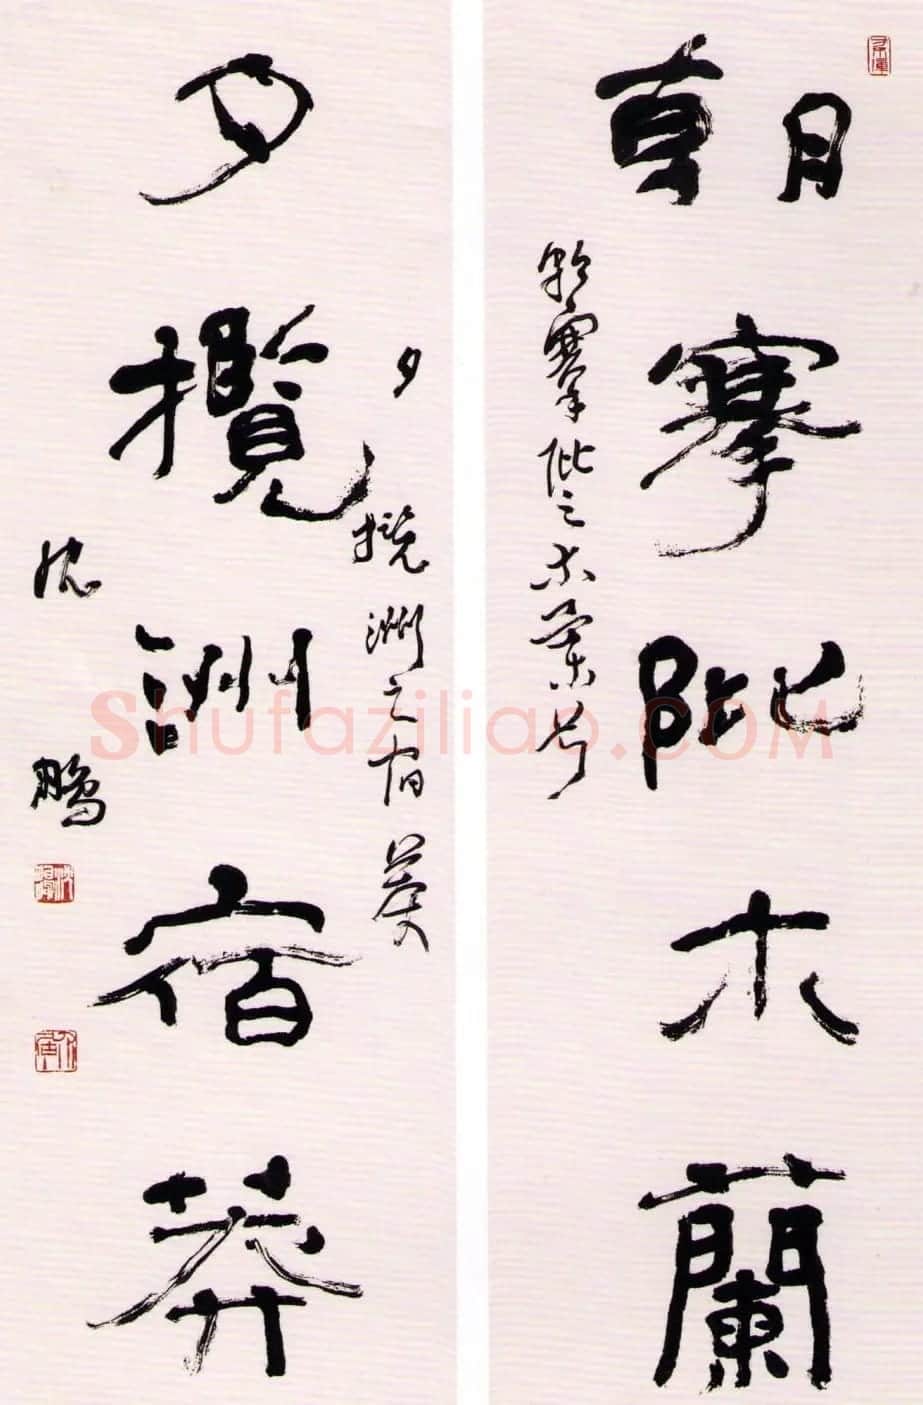 朝搴阰木蘭
朝搴阰之木蘭兮
夕攬洲之宿莽
夕攬洲宿莽
沈鵬
Shufaziliao.COM